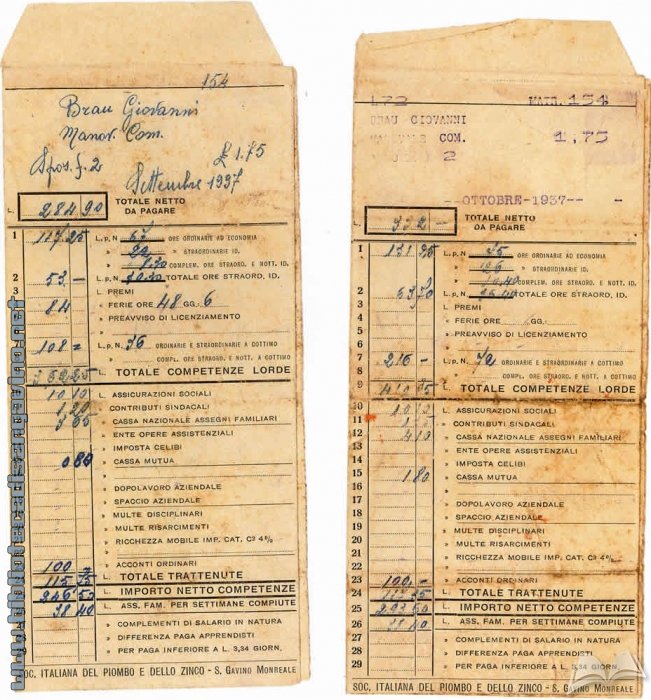 154
Brau Giovanni
Manov. Com.
Spos. f. 2
£ 1.75
Settembre 1937
L. 284 90 TOTALE NETTO DA PAGARE
1 117 25 L. p. N. 67 ORE ORDINARIE AD ECONOMIA
» STRAORDINARIE ID.
» COMPLEM. ORE STRAORD. E NOTT. ID.
2 53 - L. p. N. TOTALE ORE STRAORD, ID.
3 L. PREMI
84 » FERIE ORE 48 GG: 6
» PREAVVISO DI LICENZIAMENTO
108 = L. p. N. 36 ORDINARIE E STRAORDINARIE A COTTIMO
» COMPL. ORE STRAORD. E NOTT. A COTTIMO
362 25 L. TOTALE COMPETENZE LORDE
10 10 L. ASSICURAZIONI SOCIALI
1,20 » CONTRIBUTI SINDACALI
3 65 » CASSA NAZIONALE ASSEGNI FAMILIARI
» ENTE OPERE ASSISTENZIALI
» IMPOSTA CELIBI
0 80 » CASSA MUTUA
» DOPOLAVORO AZIENDALE
» SPACCIO AZIENDALE
» MULTE DISCIPLINARI
» MULTE RISARCIMENTI
» RICCHEZZA MOBILE IMP. CAT. C² 4%
100 » ACCONTI ORDINARI
115 75 L. TOTALE TRATTENUTE
246 50 L. IMPORTO NETTO COMPETENZE
38 40 L. ASS. FAM. PER SETTIMANE COMPIUTE
» COMPLEMENTI DI SALARIO IN NATURA
» DIFFERENZA PAGA APPRENDISTI
» PER PAGA INFERIORE A L. 3,34 GIORN.
SOC. ITALIANA DEL PIOMBO E DELLO ZINCO - S. GAVINO MONREALE
172 MATR. 154
BRAU GIOVANNI
COM. 1,75
2
--OTTOBRE-1937--
L. 332 - TOTALE NETTO DA PAGARE
1 131 25 L. p. N. 75 ORE ORDINARIE AD ECONOMIA
» STRAORDINARIE ID.
» COMPLEM. ORE STRAORD. E NOTT. ID.
2 63 70 L. p. N. TOTALE ORE STRAORD, ID.
3 L. PREMI
4 » FERIE ORE GG:
5 » PREAVVISO DI LICENZIAMENTO
6
7 216 - L. p. N. 72 ORDINARIE E STRAORDINARIE A COTTIMO
8 » COMPL. ORE STRAORD. E NOTT. A COTTIMO
9 410 95 L. TOTALE COMPETENZE LORDE
10 10 10 L. ASSICURAZIONI SOCIALI
11 » CONTRIBUTI SINDACALI
12 4 10 » CASSA NAZIONALE ASSEGNI FAMILIARI
13 » ENTE OPERE ASSISTENZIALI
14 » IMPOSTA CELIBI
15 1 80 » CASSA MUTUA
16
17 » DOPOLAVORO AZIENDALE
18 » SPACCIO AZIENDALE
19 » MULTE DISCIPLINARI
20 » MULTE RISARCIMENTI
21 » RICCHEZZA MOBILE IMP. CAT. C² 4%
22
23 100 - » ACCONTI ORDINARI
24 L. TOTALE TRATTENUTE
25 293 60 L. IMPORTO NETTO COMPETENZE
26 38 40 L. ASS. FAM. PER SETTIMANE COMPIUTE
27 » COMPLEMENTI DI SALARIO IN NATURA
28 » DIFFERENZA PAGA APPRENDISTI
29 » PER PAGA INFERIORE A L. 3,34 GIORN.
SOC. ITALIANA DEL PIOMBO E DELLO ZINCO - S. GAVINO MONREALE